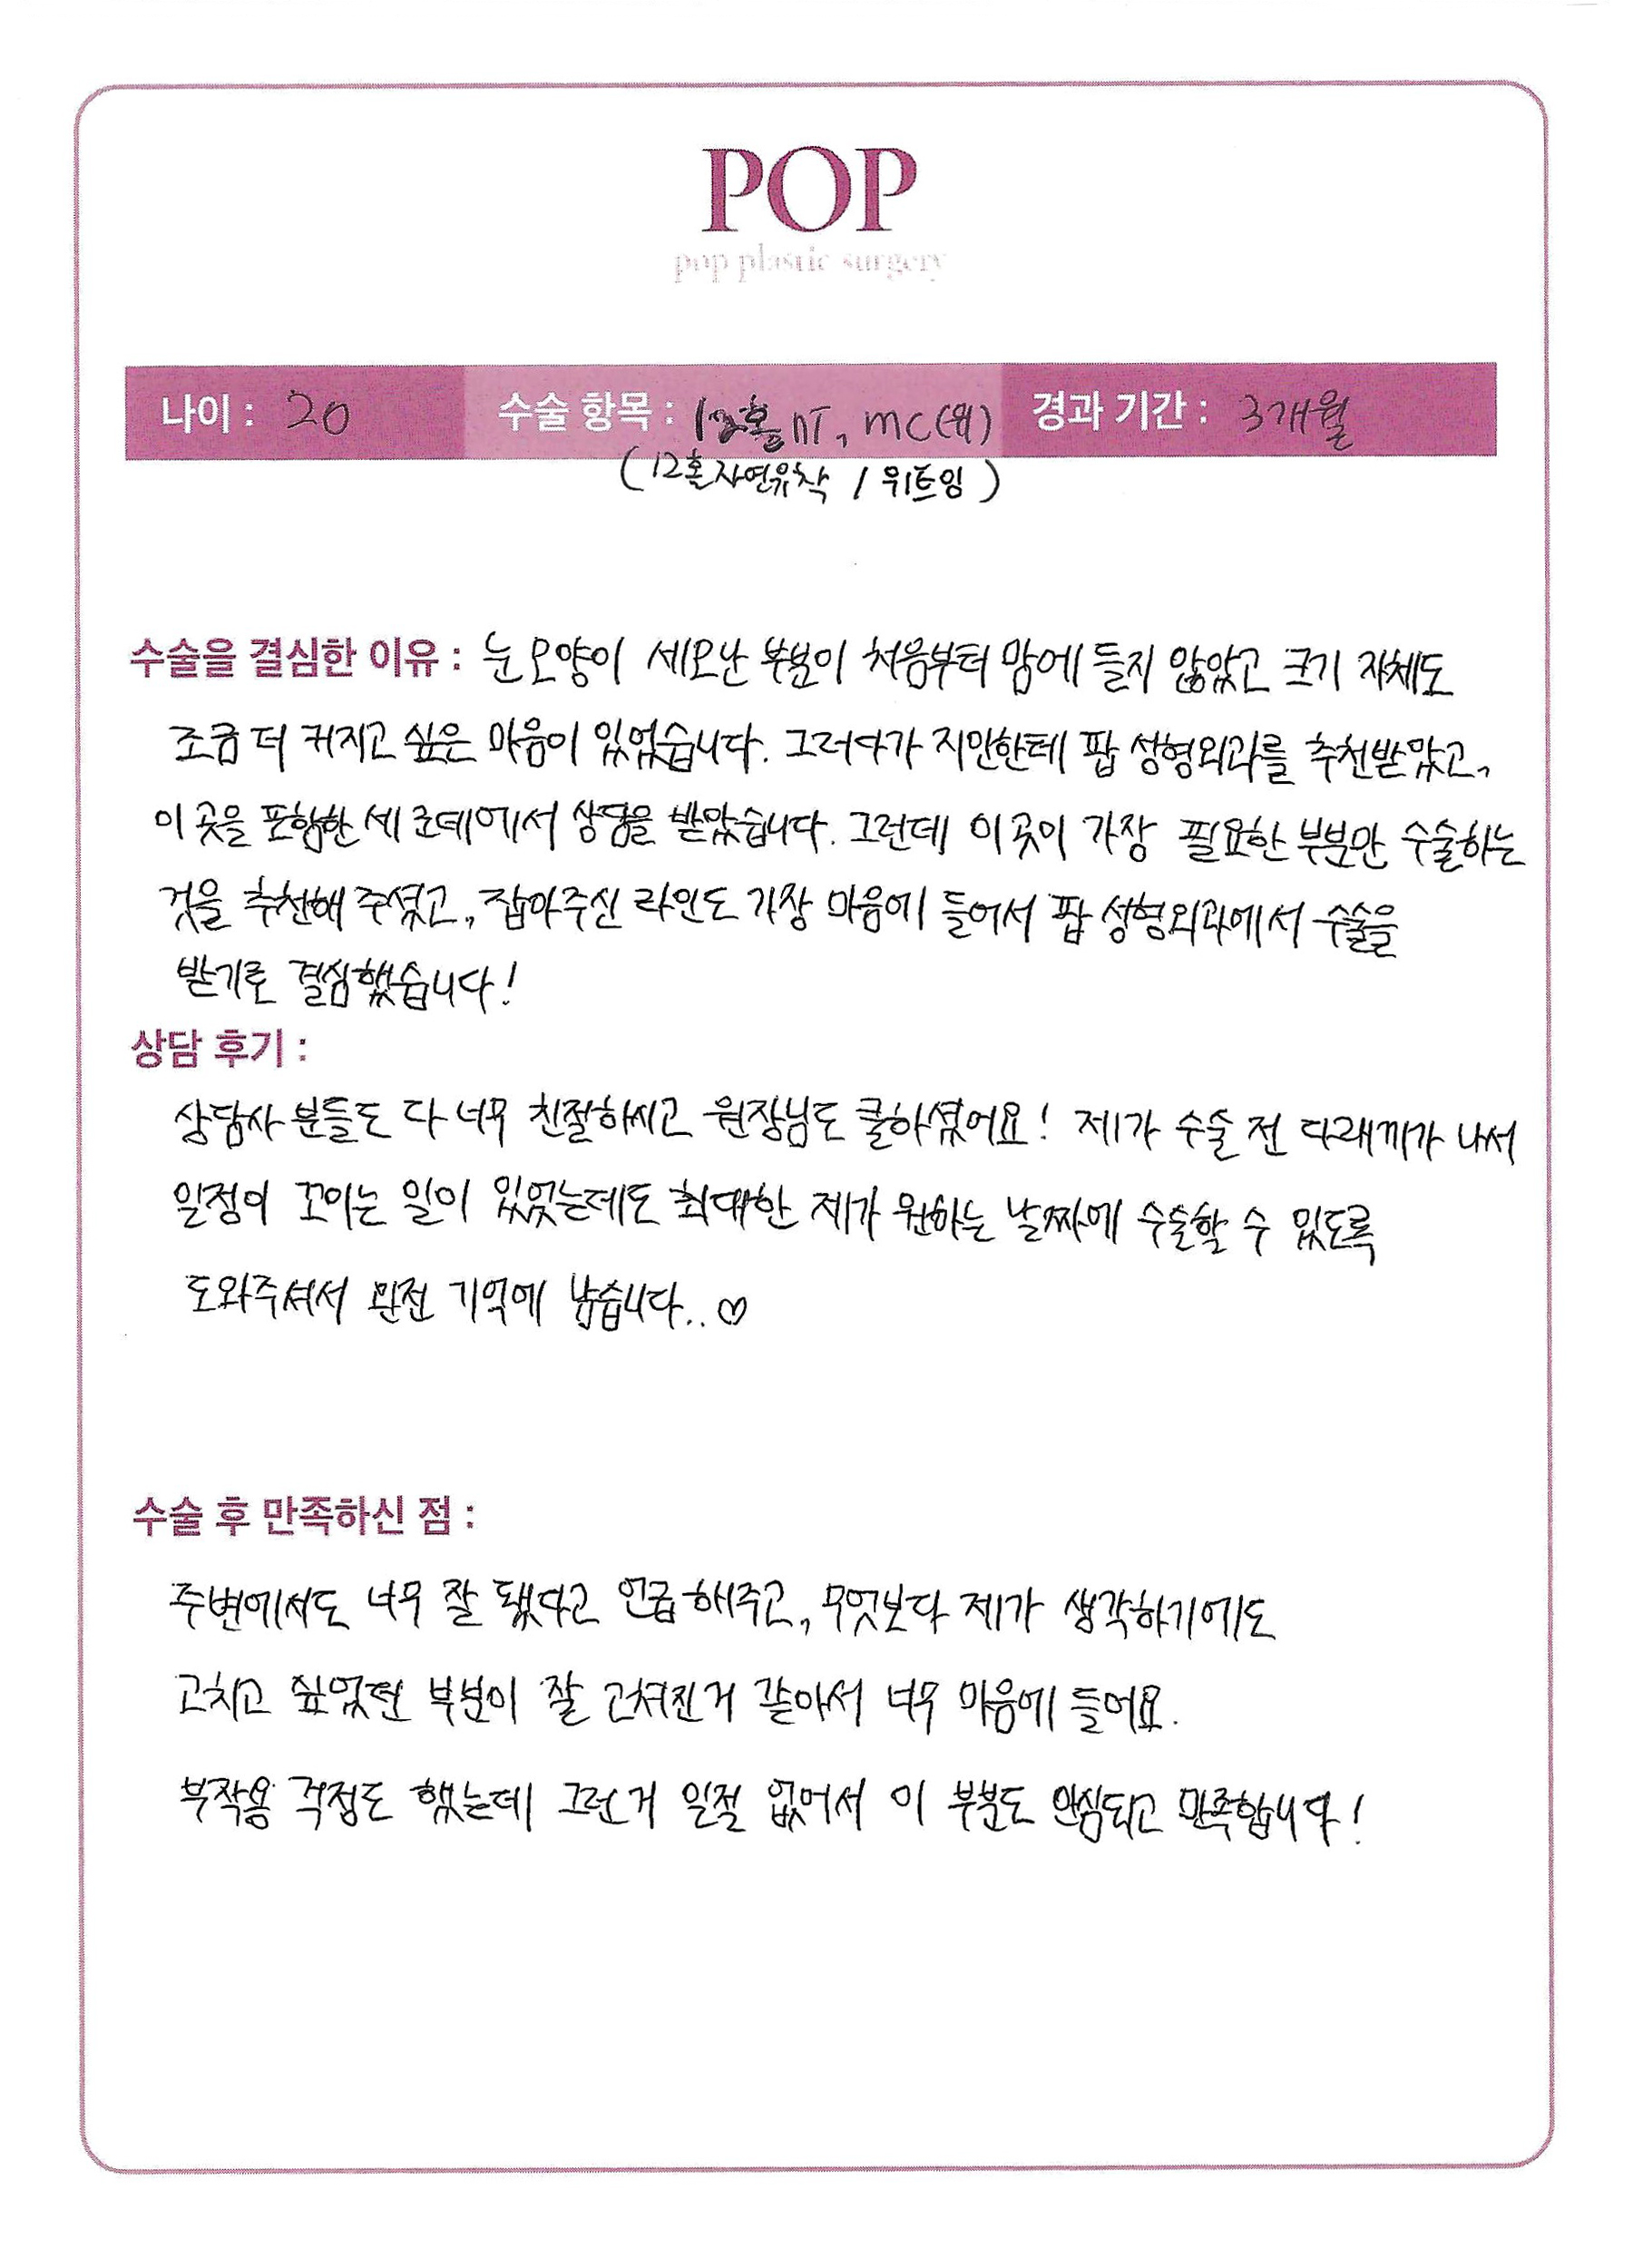 POP
pop plastic surgery
나이 : 20 수술 항목 : 12홀 NT, MC(위) 경과 기간 : 3개월
(12홀자연유착 / 위트임)
수술을 결심한 이유 : 눈 모양이 세모난 부분이 처음부터 맘에 들지 않았고 크기 자체도
조금 더 커지고 싶은 마음이 있었습니다. 그러다가 지인한테 팝 성형외과를 추천받았고,
이 곳을 포함한 세 군데에서 상담을 받았습니다. 그런데 이곳이 가장 필요한 부분만 수술하는
것을 추천해 주셨고, 잡아주신 라인도 가장 마음에 들어서 팝 성형외과에서 수술을
받기로 결심했습니다!
상담 후기 :
상담사 분들도 다 너무 친절하시고 원장님도 쿨하셨어요! 제가 수술 전 다래끼가 나서
일정이 꼬이는 일이 있었는데도 최대한 제가 원하는 날짜에 수술할 수 있도록
도와주셔서 완전 기억에 남습니다..♡
수술 후 만족하신 점 :
주변에서도 너무 잘 됐다고 언급해주고, 무엇보다 제가 생각하기에도
고치고 싶었던 부분이 잘 고쳐진거 같아서 너무 마음에 들어요.
부작용 걱정도 했는데 그런거 일절 없어서 이 부분도 안심되고 만족합니다!